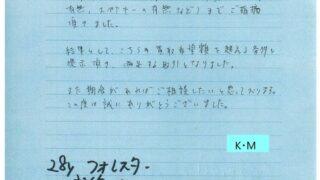 有無、スペアキーの有無など）までご指摘
頂きました。
結果として、こちらの買取希望額を超える条件を
提示頂き、満足な取引となりました。
また機会があればご相談したいと思っております。
この度は誠にありがとうございました。
K・M
28y フォレスター